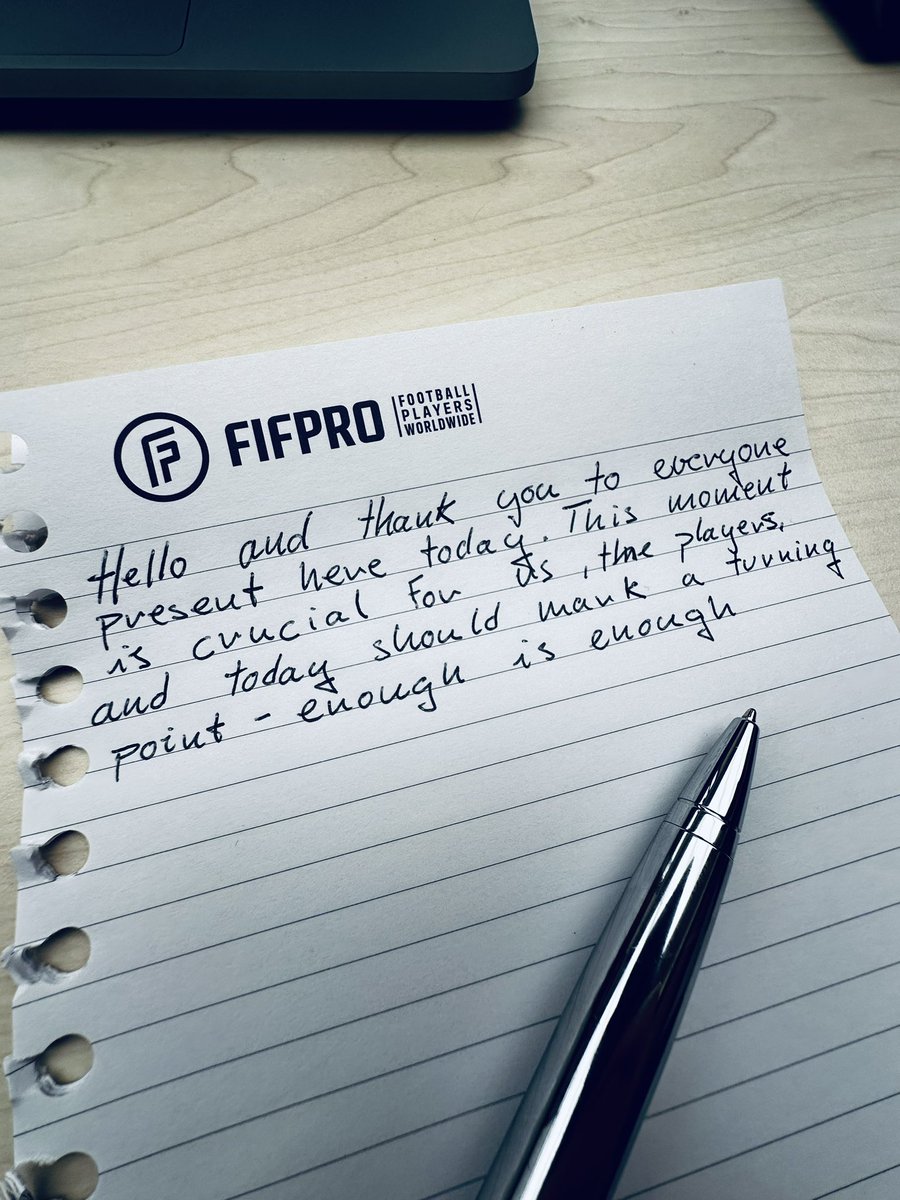 FIFPRO
FOOTBALL
PLAYERS
WORLDWIDE
Hello and thank you to everyone
present here today. This moment
is crucial for us, the players,
and today should mark a turning
point - enough is enough